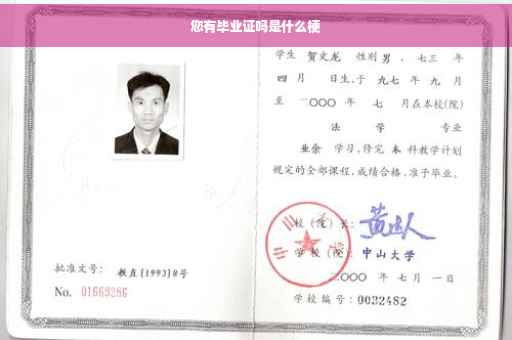 您有毕业证吗是什么梗
学生 贺文龙 性别 男 、七三 年
四 月 日生,于 九七 年 九 月
至 二〇〇〇 年 七 月在本校(院)
法 学 专业
业余 学习,修完 本 科教学计划
规定的全部课程,成绩合格,准予毕业。
校(院)长:
学校(院): 中山大学
二〇〇〇 年 七 月 一 日
批准文号: 教直[1993]8号
No. 01669286
学校编号: 0032482